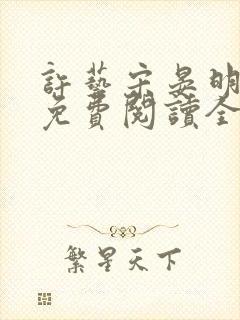 許藝宋晏明
免費閱讀全
繁星天下